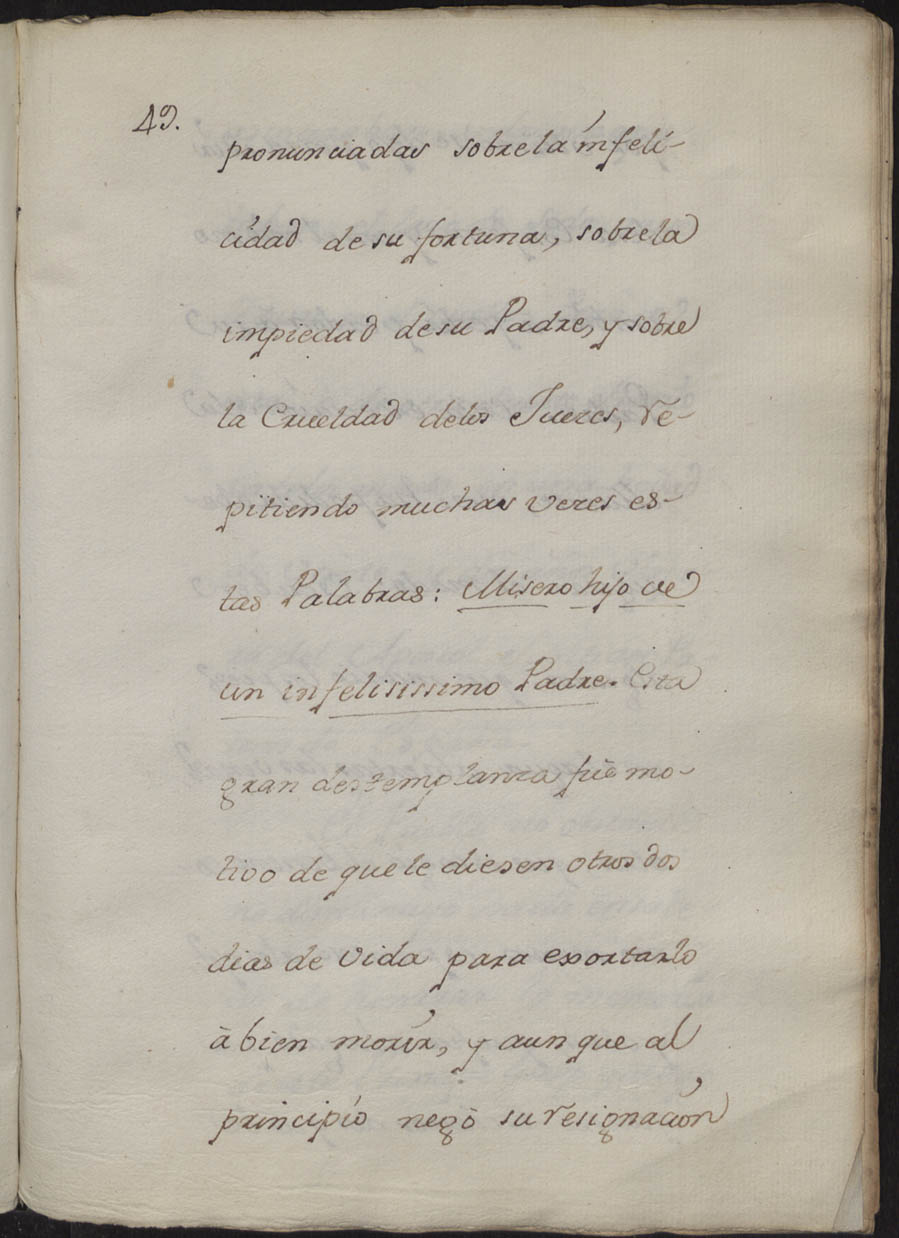 49.
pronunciadas sobre la infeli-
cidad de su fortuna, sobre la
impiedad de su Padre, y sobre
la Crueldad delos Juezes, re-
pitiendo muchas vezes es-
tas Palabras: Misero hijo de
un infelisissimo Padre. Esta
gran destemplanza fuè mo-
tivo de que le diesen otros dos
dias de vida para exortarlo
à bien morir, y aun que al
principio negò su resignacion